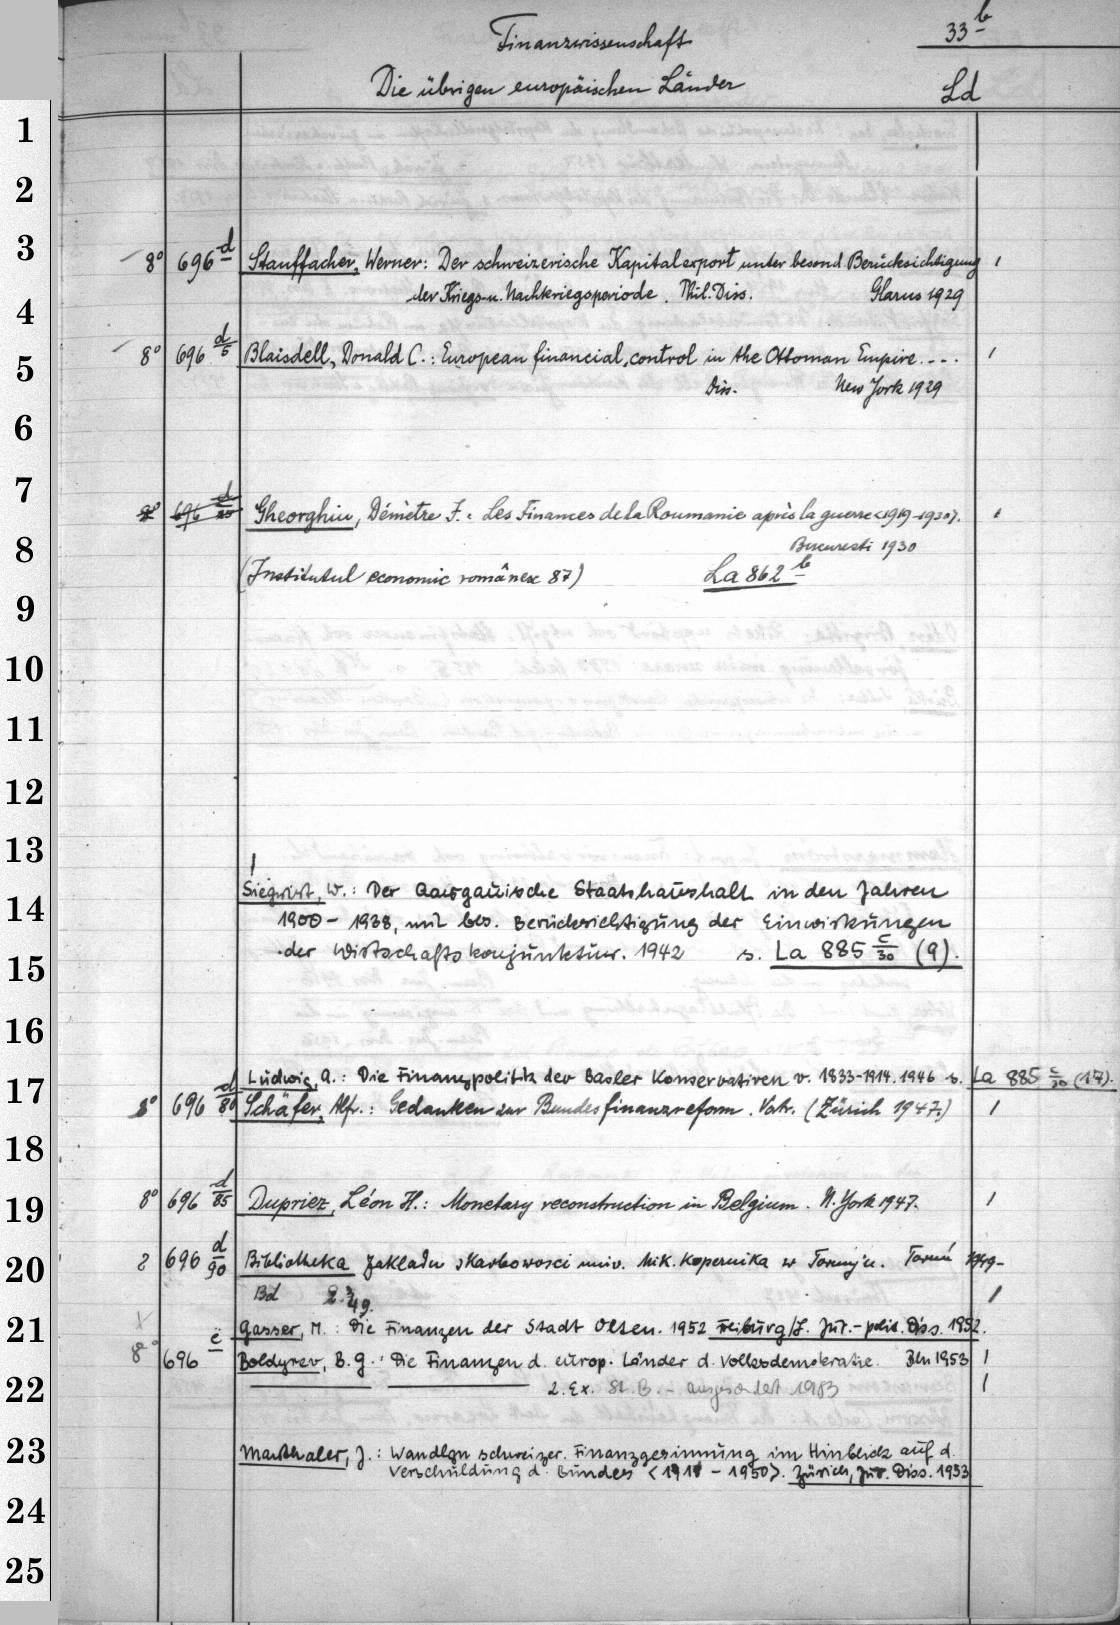 Finanzwissenschaft 33 b
Die übrigen europäischen Länder Ld
1
2
3
8° 696 d Stauffacher, Werner: Der schweizerische Kapitalexport unter besond. Berücksichtigung 1
der Kriegs- u. Nachkriegsperiode. Phil. Diss. Glarus 1929
4
8° 696 d/5 Blaisdell, Donald C.: European financial control in the Ottoman Empire.... 1
5
Diss. New York 1929
6
7
8° 696 d/20 Gheorghiu, Démètre J.: Les Finances de la Roumanie après la guerre <1919-1930>. 1
Bucuresti 1930
8
(Institutul economic românesc 87) La 862 b
9
10
11
12
13
14
Siegrist, W.: Der Aargauische Staatshaushalt in den Jahren
1900 - 1938, mit bes. Berücksichtigung der Einwirkungen
der Wirtschaftskonjunktur. 1942 s. La 885 c/30 (9).
15
16
17
Ludwig, A.: Die Finanzpolitik der Basler Konservativen v. 1833-1914. 1946 s. La 885 c/30 (17).
8° 696 d/80 Schäfer, Alfr.: Gedanken zur Bundesfinanzreform. Votr. (Zürich 1947.) 1
18
19
8° 696 d/85 Dupriez, Léon H.: Monetary reconstruction in Belgium. N. York 1947. 1
20
8 696 d/90 Bibliotheka Zakladu skarbowosci univ. Mik. Kopernika w Toruniu. Toruń 1949-
Bd 2. 49. 1
21
Gasser, M.: Die Finanzen der Stadt Olten. 1952 Freiburg/S. Jur.-polit. Diss. 1952.
8° 696 e Boldyrev, B. G.: Die Finanzen d. europ. Länder d. Volksdemokratie. Bln 1953 1
22
2. Ex. St. B. - ausgesondert 1983 1
23
Marthaler, J.: Wandlgn schweizer. Finanzgesinnung im Hinblick auf d.
Verschuldung d. Bundes <1911 - 1950>. Zürich, Jur. Diss. 1953
24
25